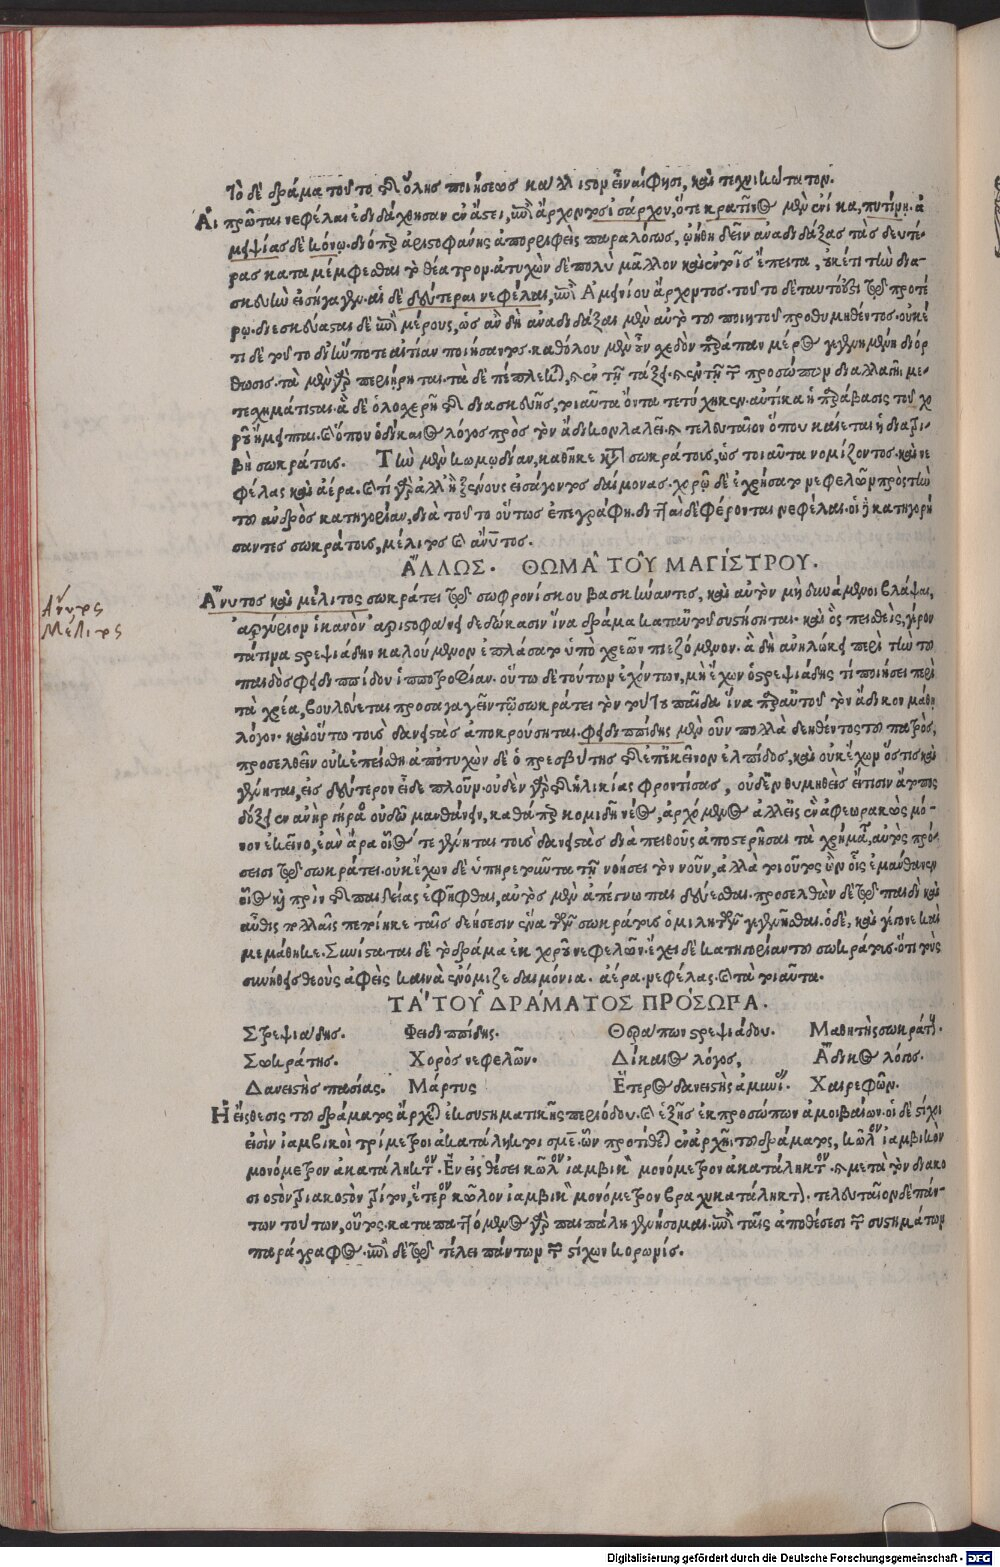 Τὸ δὲ δρᾶμα τοῦτο τῆς ὅλης ποιήσεως κάλλιστον εἶναί φησι, καὶ τεχνικώτατον.
Αἱ πρῶται νεφέλαι ἐδιδάχθησαν ἐν ἄστει, ἐπὶ ἄρχοντος ἰσάρχου, ὅτε κρατῖνος μὲν ἐνίκα, πυτίνῃ. ἀ
μειψίας δὲ κόνῳ. διόπερ ἀριστοφάνης ἀπορριφθεὶς παραλόγως, ᾠήθη δεῖν ἀναδιδάξας τὰς δευτέ
ρας καταμέμφεσθαι τὸ θέατρον. ἀτυχὼν δὲ πολὺ μᾶλλον καὶ ἐν τοῖς ἔπειτα, οὐκέτι τὴν δια-
σκευὴν εἰσήγαγεν. αἱ δὲ δεύτεραι νεφέλαι, ἐπὶ Ἀμεινίου ἄρχοντος. τοῦτο δὲ ταυτόν ἐστι τῷ προτέ
ρῳ. διεσκεύασται δὲ ἐπὶ μέρους, ὡς ἂν δὴ ἀναδιδάξαι μὲν αὐτὸ τοῦ ποιητοῦ προθυμηθέντος. οὐκέ
τι δὲ τοῦτο δι' ἥν ποτε αἰτίαν ποιήσαντος. καθόλου μὲν οὖν σχεδὸν παράπαν μέρος γεγενημένη διόρ
θωσις. τὰ μὲν γὰρ περιῄρηται. τὰ δὲ πέπλεκται, καὶ ἐν τῇ τάξει. καὶ ἐν τῇ τῶν προσώπων διαλλαγῇ με-
τεσχημάτισται. ἃ δὲ ὁλοσχερῆ τῆς διασκευῆς, τοιαῦτα ὄντα τετύχηκεν. αὐτίκα ἡ παράβασις τοῦ χ
ροῦ ἤμειπται. καὶ ὅπου ὁ δίκαιος λόγος πρὸς τὸν ἄδικον λαλεῖ. καὶ τελευταῖον ὅπου καίεται ἡ διατρι-
βὴ σωκράτους. Τὴν μὲν κωμῳδίαν, καθῆκε κατὰ σωκράτους, ὡς τοιαῦτα νομίζοντος. καὶ νε
φέλας καὶ ἀέρα. καὶ τί γὰρ ἀλλ' ἢ ξένους εἰσάγοντος δαίμονας. χορῷ δὲ ἐχρήσατο νεφελῶν πρὸς τὴν
τοῦ ἀνδρὸς κατηγορίαν, διὰ τοῦτο οὕτως ἐπεγράφη. διτταὶ δὲ φέρονται νεφέλαι. οἱ δὲ κατηγορή
σαντες σωκράτους, μέλιτος καὶ ἄνυτος.
ἌΛΛΩΣ. ΘΩΜΑ͂ ΤΟΥ͂ ΜΑΓΊΣΤΡΟΥ.
Ἄνυτος καὶ μέλιτος σωκράτει τῷ σωφρονίσκου βασκήναντες, καὶ αὐτὸν μὴ δυνάμενοι βλάψαι,
ἀργύριον ἱκανὸν ἀριστοφάνει δεδώκασιν ἵνα δρᾶμα κατ' αὐτοῦ συστήσηται. καὶ ὃς πεισθεὶς, γέρον
τά τινα στρεψιάδην καλούμενον ἐπλάσατο ὑπὸ χρεῶν πιεζόμενον. ἃ δὴ ἀνηλώκει περὶ τὴν τοῦ
παιδὸς φειδιππίδου ἱπποτροφίαν. οὕτω δὲ τούτων ἐχόντων, μὴ ἔχων ὁ στρεψιάδης τί ποιήσει περὶ
τὰ χρέα, βουλεύεται προσαγαγεῖν τῷ σωκράτει τὸν ἑαυτοῦ παῖδα ἵνα παρ' αὐτοῦ τὸν ἄδικον μάθῃ
λόγον. καὶ οὕτω τοὺς δανειστὰς ἀποκρούσηται. φειδιππίδης μὲν οὖν πολλὰ δεηθέντος τοῦ πατρὸς,
προσελθεῖν οὐκ ἐπείσθη ἀποτυχὼν δὲ ὁ πρεσβύτης τῆς ἐπ' ἐκεῖνον ἐλπίδος, καὶ οὐκ ἔχων ὅστις καὶ
γένηται, εἰς δεύτερον εἶδε πλοῦν. οὐδὲν γὰρ τῆς ἡλικίας φροντίσας, οὐδ' ἐνθυμηθεὶς εἴ τισιν ἄτοπος
δόξει ἐν ἀνὴρ γήρᾳ οὐδῷ μανθάνειν, καθάπερ κομιδῇ νέος, ἀρχόμενος ἀλλ' εἰς ἓν ἀφεωρακὼς μό-
νον ἐκεῖνο, ἐὰν ἄρα οἷός τε γένηται τοὺς δανειστὰς διὰ πειθοῦς ἀποστερῆσαι τὰ χρήματα, αὐτὸς πρό-
σεισι τῷ σωκράτει. οὐκ ἔχων δὲ ὑπηρετοῦντα τῇ νοήσει τὸν νοῦν, ἀλλὰ τοιοῦτος ὢν οἷς ἐμάνθανεν
οἷος καὶ πρὶν τῆς παιδείας ἐφῆφθαι, αὐτὸς μὲν ἀπέγνω παιδεύεσθαι. προσελθὼν δὲ τῷ παιδὶ καὶ
αὖθις πολλαῖς πεποίηκε ταῖς δεήσεσιν ἕνα τῶν σωκράτους ὁμιλητῶν γεγενῆσθαι. ὁ δὲ, καὶ γέγονε καὶ
μεμάθηκε. Συνίσταται δὲ τὸ δρᾶμα ἐκ χοροῦ νεφελῶν. ἔχει δὲ κατηγορίαν τοῦ σωκράτους. ὅτι τοὺς
συνήθεις θεοὺς ἀφεὶς καινὰ ἐνόμιζε δαιμόνια. ἀέρα. νεφέλας. καὶ τὰ τοιαῦτα.
ΤᾺ ΤΟΥ͂ ΔΡΆΜΑΤΟΣ ΠΡΌΣΩΠΑ.
Στρεψιάδης. Φειδιππίδης. Θεράπων στρεψιάδου. Μαθητὴς σωκράτους.
Σωκράτης. Χορὸς νεφελῶν. Δίκαιος λόγος, Ἄδικος λόγος.
Δανειστὴς πασίας. Μάρτυς Ἕτερος δανειστὴς ἀμυνί. Χαιρεφῶν.
Ἡ εἴσθεσις τοῦ δράματος ἄρχεται ἐκ συστηματικῆς περιόδου. καὶ ἑξῆς ἐκ προσώπων ἀμοιβαίων. οἱ δὲ στίχοι
εἰσὶν ἰαμβικοὶ τρίμετροι ἀκατάληκτοι σμε. ὧν προτίθεται ἐν ἀρχῇ τοῦ δράματος, κῶλον ἰαμβικὸν
μονόμετρον ἀκατάληκτον. Ἐν εἰσθέσει κῶλον ἰαμβικὸν μονόμετρον ἀκατάληκτον. καὶ μετὰ τὸν διακο
σιοστὸν τριακοστὸν στίχον, ἕτερον κῶλον ἰαμβικὸν μονόμετρον βραχυκατάληκτον. τελευταῖον δὲ πάν-
των τούτων, οὗτος. καταπαττόμενος γὰρ παιπάλη γενήσομαι. ἐπὶ ταῖς ἀποθέσεσι τῶν συστημάτων
παράγραφος. ἐπὶ δὲ τῷ τέλει πάντων τῶν στίχων κορωνίς.
Ἄνυτος
Μέλιτος
Digitalisierung gefördert durch die Deutsche Forschungsgemeinschaft - DFG